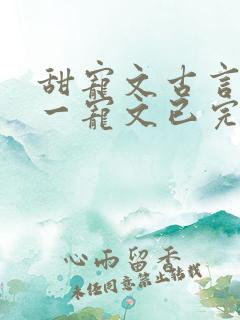 甜寵文古言
一寵文已完
心雨留香
未经同意禁止转载